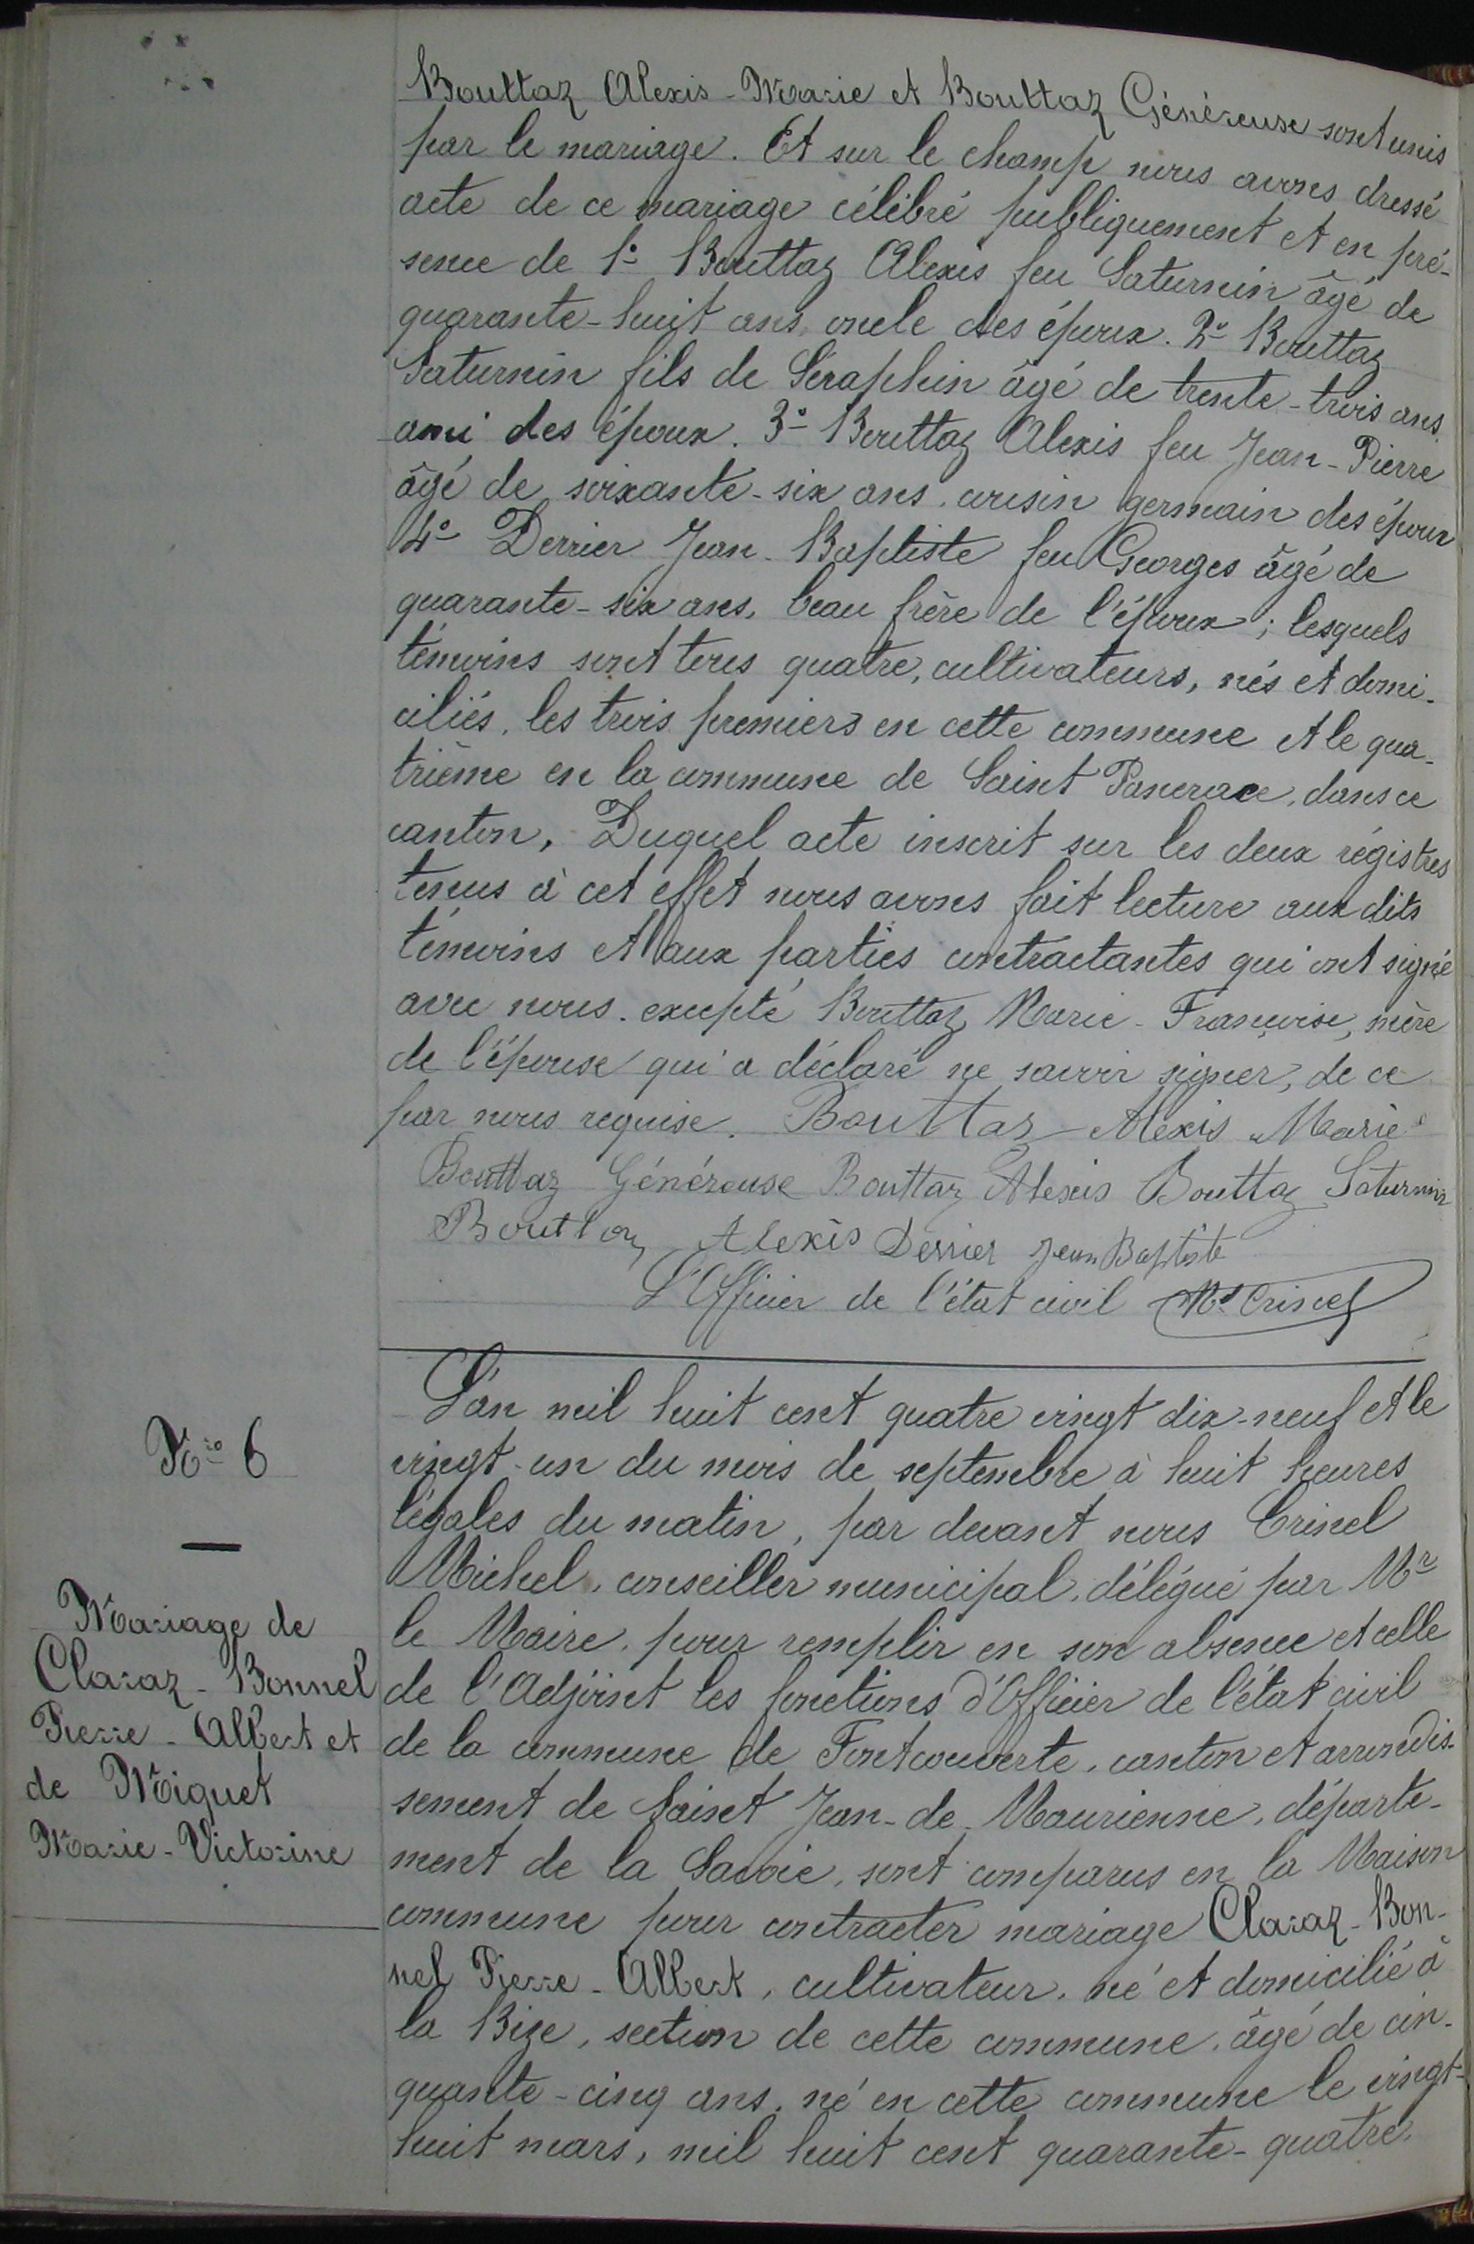 Bouttaz Alexis-Marie et Bouttaz Généreuse sont unis
par le mariage. Et sur le champ nous avons dressé
acte de ce mariage célébré publiquement et en pré-
sence de 1° Bouttaz Alexis feu Saturnin âgé de
quarante-huit ans, oncle des époux. 2° Bouttaz
Saturnin fils de Séraphin âgé de trente-trois ans,
ami des époux. 3° Bouttaz Alexis feu Jean-Pierre
âgé de soixante-six ans, cousin germain des époux
4° Derrier Jean-Baptiste feu Georges âgé de
quarante-six ans, beau frère de l'époux; lesquels
témoins sont tous quatre, cultivateurs, nés et domi-
ciliés, les trois premiers en cette commune et le qua-
trième en la commune de Saint Pancrace, dans ce
canton, Duquel acte inscrit sur les deux régistres
tenus à cet effet nous avons fait lecture aux dits
témoins et aux parties contractantes qui ont signé
avec nous, excepté Bouttaz Marie-Françoise, mère
de l'épouse qui a déclaré ne savoir signer, de ce
par nous requise. Bouttaz Alexis Marie
Bouttaz Généreuse Bouttaz Alexis Bouttaz Saturnin
Bouttaz Alexis Derrier Jean Baptiste
L'Officier de l'état civil Mel Crinel
N° 6
Mariage de
Claraz-Bonnel
Pierre-Albert et
de Miguet
Marie-Victorine
L'an mil huit cent quatre vingt dix-neuf et le
vingt-un du mois de septembre à huit heures
légales du matin, par devant nous Crinel
Michel, conseiller municipal, délégué par Mr
le Maire, pour remplir en son absence et celle
de l'Adjoint les fonctions d'Officier de l'état civil
de la commune de Fontcouverte, canton et arrondis-
sement de Saint Jean-de-Maurienne, départe-
ment de la Savoie, sont comparus en la Maison
commune pour contracter mariage Claraz-Bon-
nel Pierre-Albert, cultivateur, né et domicilié à
la Bize, section de cette commune, âgé de cin-
quante-cinq ans, né en cette commune le vingt-
huit mars, mil huit cent quarante-quatre,